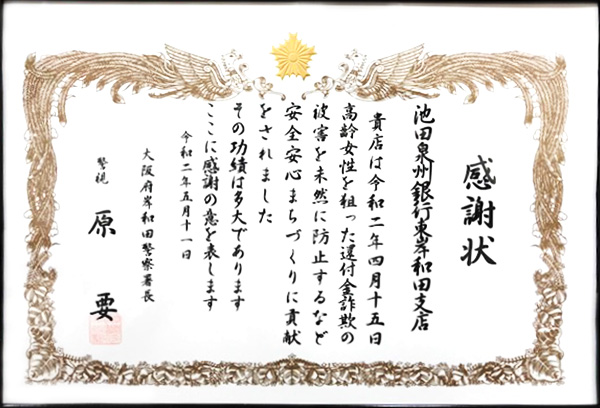 感謝状
池田泉州銀行東岸和田支店
貴店は令和二年四月十五日
高齢女性を狙った還付金詐欺の
被害を未然に防止するなど
安全安心まちづくりに貢献
をされました
その功績は多大であります
ここに感謝の意を表します
令和二年五月十一日
大阪府岸和田警察署長
警視 原 要